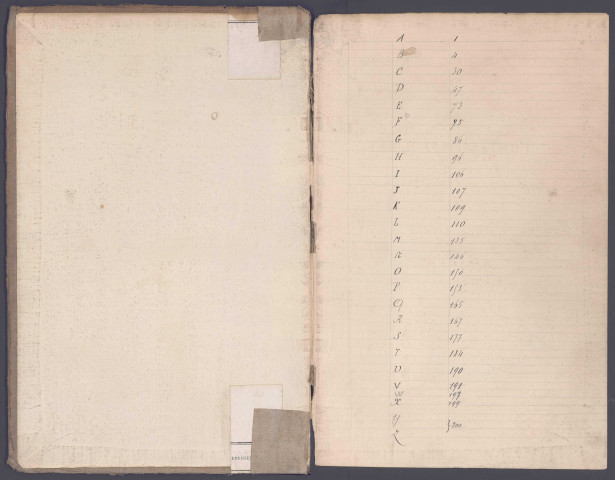 A 1
B 4
C 30
D 47
E 72
F 75
G 86
H 96
I 106
J 107
K 109
L 110
M 125
N 146
O 150
P 153
Q 165
R 167
S 177
T 184
U 190
V 191
W 197
X 199
Y
Z } 200